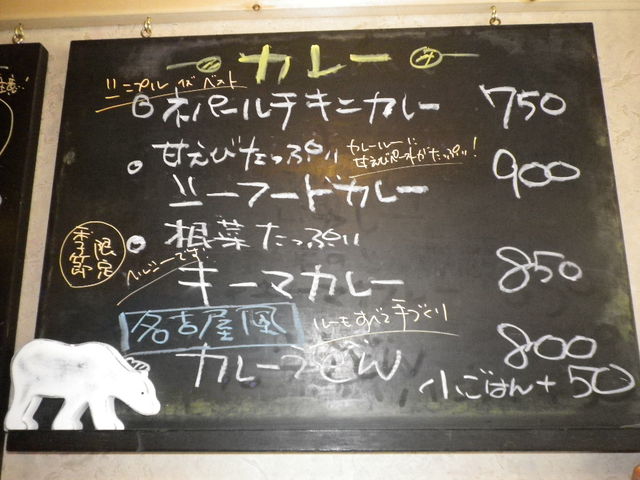 カレー
シンプルイズベスト
ネパールチキンカレー 750
甘えびたっぷり
カレールーに
甘えびペーストがたっぷり!
シーフードカレー 900
季節
限定
根菜たっぷり
ヘルシーです
キーマカレー 850
名古屋風
ルーもすべて手づくり
カレーうどん 800
小ごはん+50